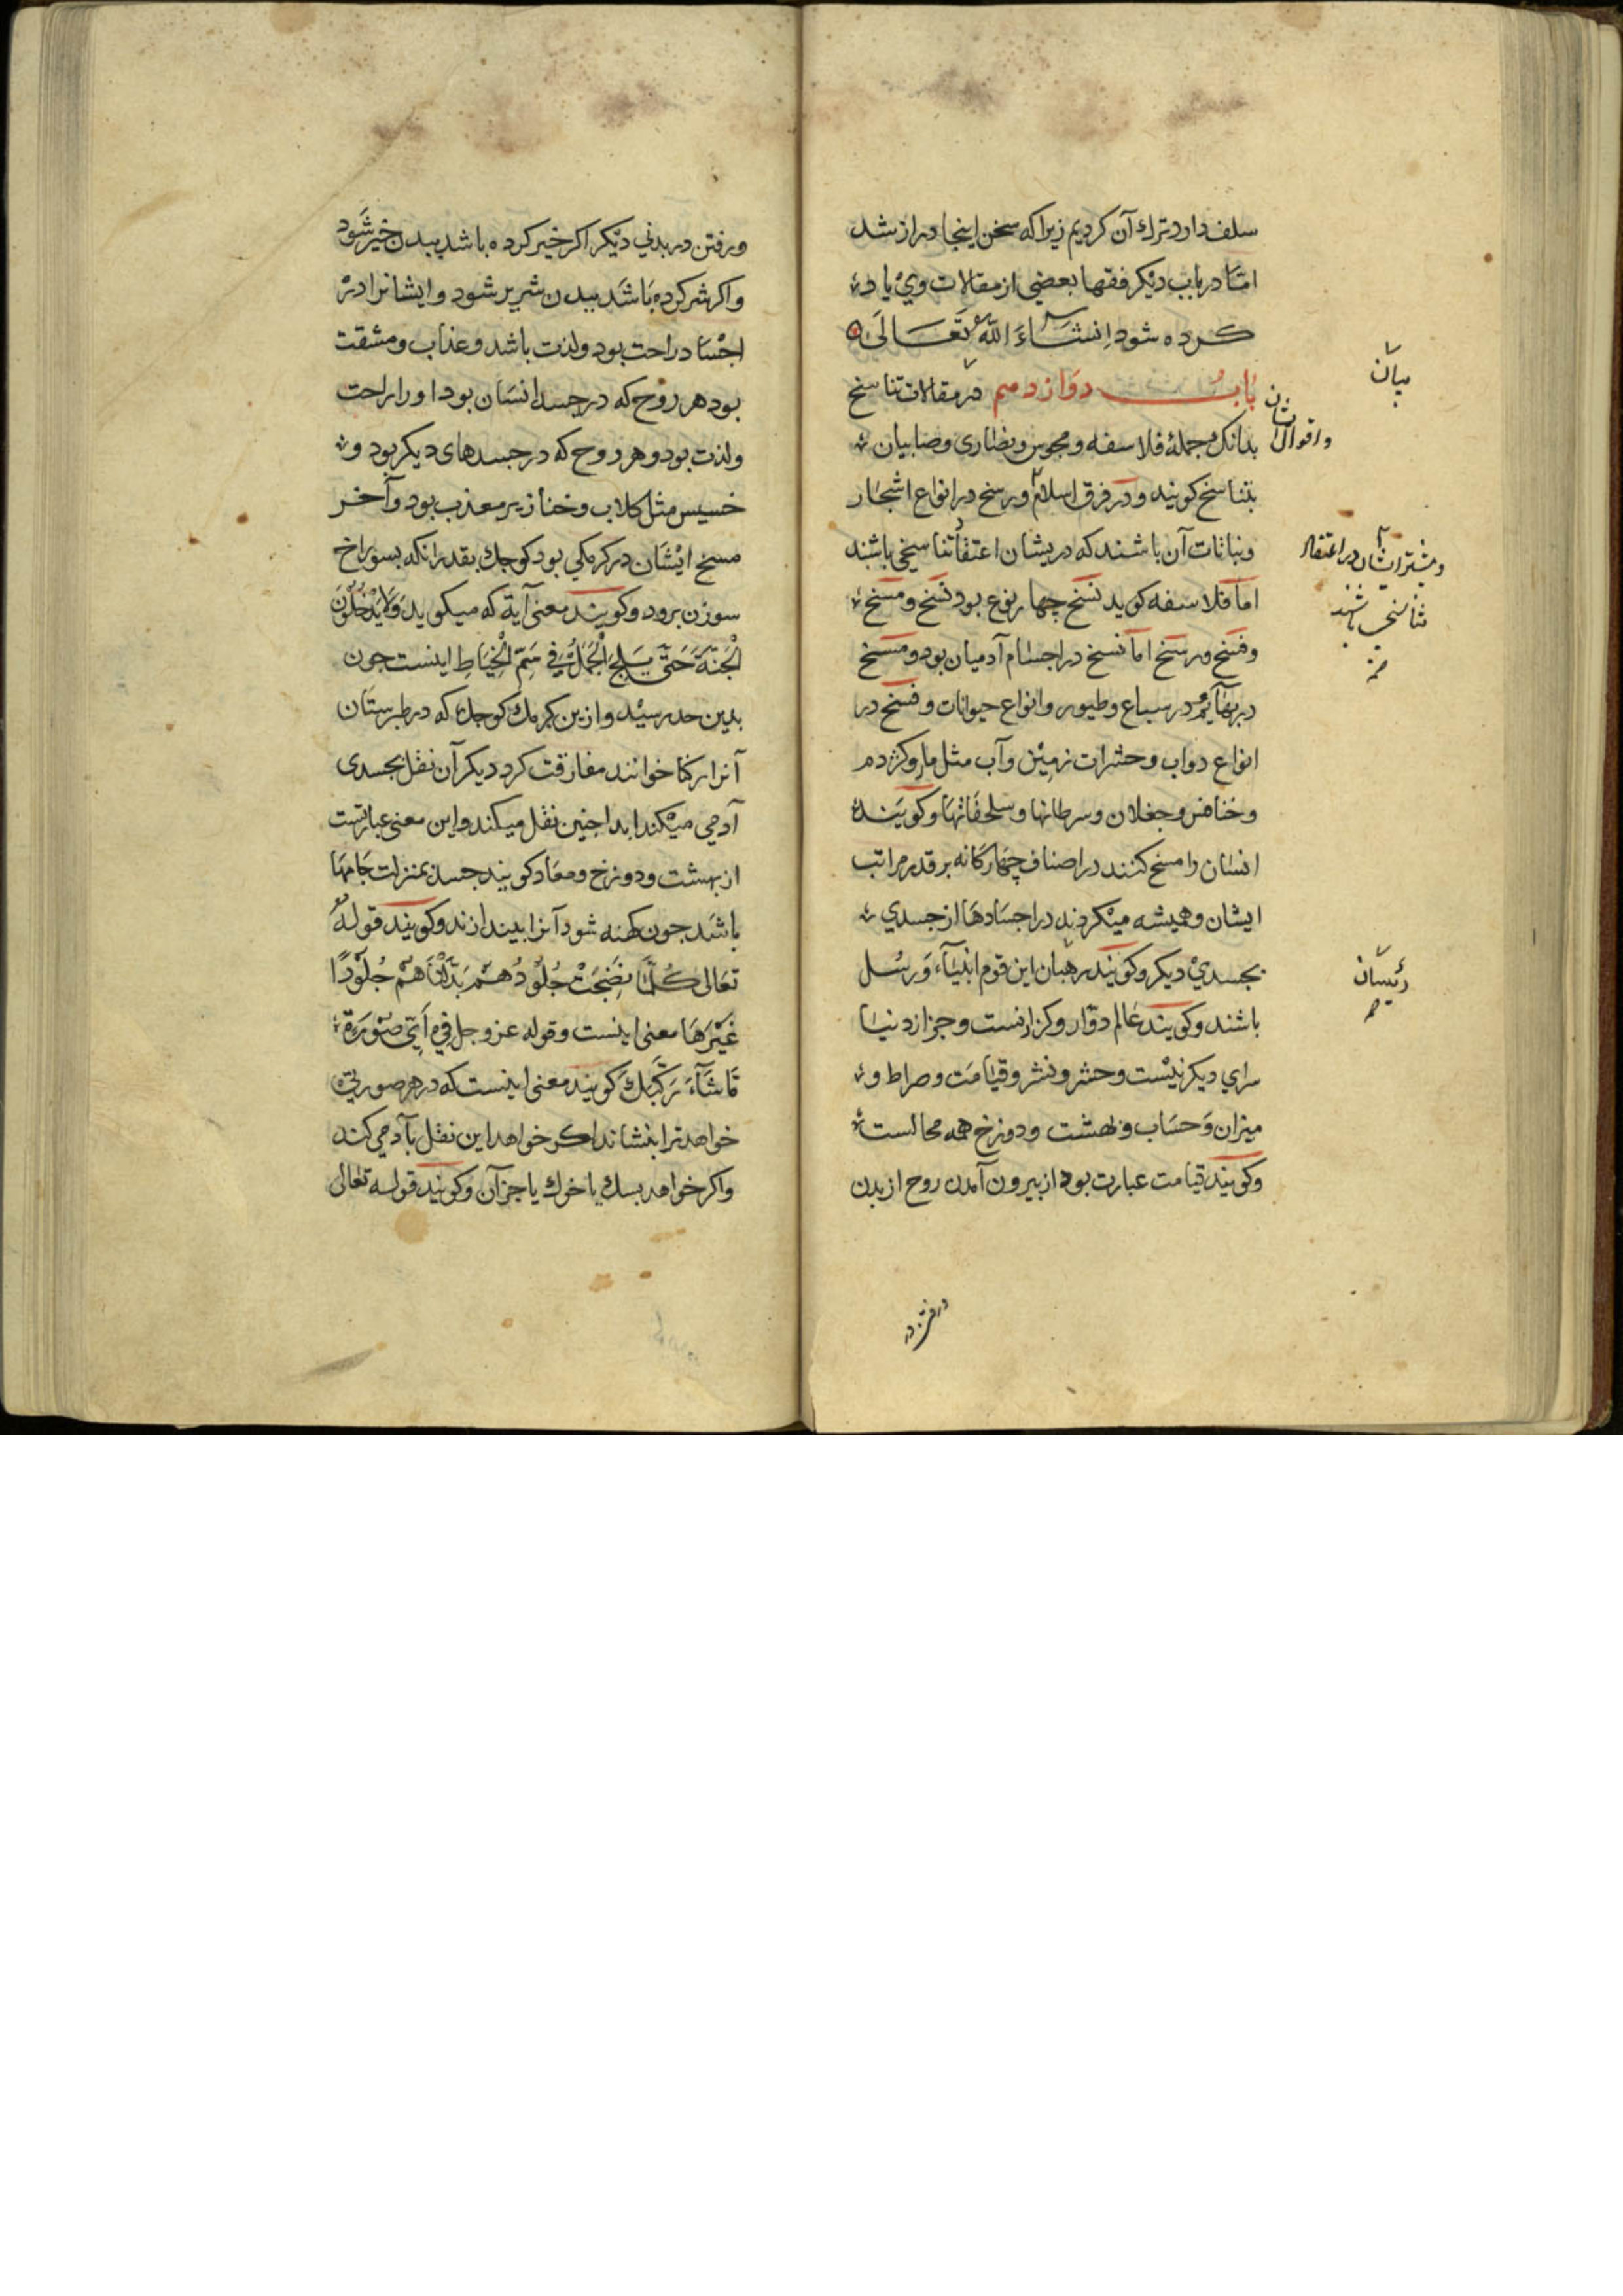 سلف دارد ترك آن كرديم زيرا كه سخن اينجا دراز شد
امّا در باب ديكر فقها بعضى از مقالات وىْ ياد
كرده شود اِنشَاءَ اللّٰهُ تَعَالَى
بابُ دوازدهم در مقالات تناسخ
بيان
واقوال ايشان
بدانك جملهٔ فلاسفه و مجوس و نصارى و صابيان
بتناسخ كويند و در فرق اسلام و رسخ در انواع اشجار
ونباتات آن باشند كه دريشان اعتقاد تناسخى باشند
و بيشتر ايشان در اعتقاد
تناسخى باشند
اما فلاسفه كويد نسخ چهار نوع بود نسخ و مسخ
وفسخ و رسخ اما نسخ در اجسام آدميان بود و مسخ
در بهَآيم و در سباع و طيور و انواع حيوانات و فسخ در
انواع دواب و حشرات زمين و آب مثل مار و كژدم
و خنافس و جعلان و سرطانها و سلحفاتها و كويند
انسان را مسخ كنند در اصناف چهاركانه بر قدر مراتب
ايشان و هميشه ميكردند در اجسادها از جسدي
بجسديْ ديكر و كويند رهبان اين قوم انبيَآء وَ رسُل
رئيسان
باشند و كويند عالم دوّار و كزارنست و جز از دنيا
سراي ديكر نيست و حشر و نشر و قيامت و صراط و
ميزان وَ حسَاب و بهشت و دوزخ همه محالست
و كويند قيامت عبارت بود از بيرون آمدن روح از بدن
ورفتن در بدني ديكر اكر خير كرده باشد ببدن خير شَود
واكر شر كرده بَاشَد ببدن شرير شود و ايشانرا در
اجْسَاد راحت بود ولذت باشد و عذاب و مشقت
بود هر روح كه در جسد انسَان بود او را راحت
ولذت بود و هر روح كه در جسدهاى ديكر بود و
خسيس مثل كلاب و خنازير معذب بود و آخر
مسخ ايشَان در كرمكي بود كوچك بقدر انكه بسوراخ
سوزن برود و كويند معنى آية كه ميكويد وَلَا يَدْخُلُونَ
الْجَنَّةَ حَتَّى يَلِجَ الْجَمَلُ فِي سَمِّ الْخِيَاطِ اينست جون
بدين حد رسيْد و ازين كرمك كوچك كه در طبرستان
آنرا خوانند مفارقت كرد ديكر آن نقل بجسدى
آدمي ميكند ابدا جنين نقل ميكند و اين معنى عبارتست
از بهشت و دوزخ و معَاد كويند جسد بمنزلت جَامهَا
باشَد جون كهنه شود آنرا بيندازند و كويند قولهُ
تعَالى كُلَّمَا نَضِجَتْ جُلُودُهُمْ بَدَّلْنَاهُمْ جُلُوْدًا
غَيْرَهَا معنى اينست و قوله عز وجل فِي اَيِّ صُوْرَةٍ
مَا شَآءَ رَكَّبَكَ كويند معنى اينست كه در هر صورتى
خواهد ترا بنشاند اكر خواهد اين نقل بآدمي كند
واكر خواهد بسك يا خوك يا جز آن و كويند قوله تعالى